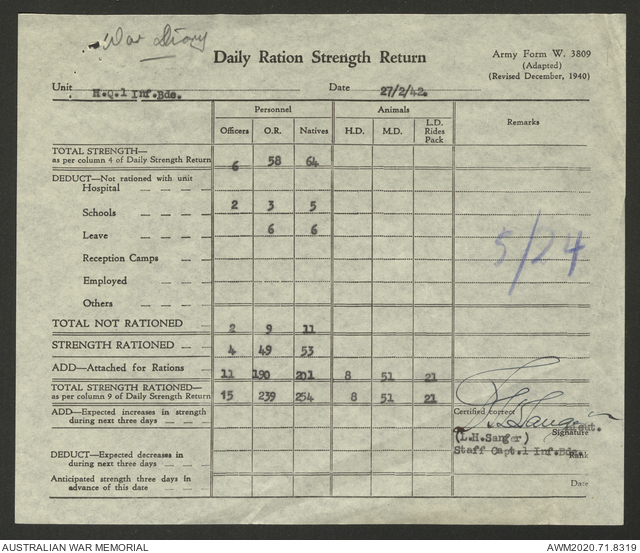 War Diary
Daily Ration Strength Return
Army Form W. 3809
(Adapted)
(Revised December, 1940)
Unit H.Q.1 Inf.Bde. Date 27/2/42.
Personnel Animals Remarks
Officers O.R. Natives H.D. M.D. L.D. Rides Pack
TOTAL STRENGTH—
as per column 4 of Daily Strength Return 6 58 64
DEDUCT—Not rationed with unit
Hospital
Schools 2 3 5
Leave 6 6
5/24
Reception Camps
Employed
Others
TOTAL NOT RATIONED 2 9 11
STRENGTH RATIONED 4 49 53
ADD—Attached for Rations 11 190 201 8 51 21
TOTAL STRENGTH RATIONED—
as per column 9 of Daily Strength Return 15 239 254 8 51 21
ADD—Expected increases in strength
during next three days
Certified correct
Signature
(L.H.Sanger)
Staff Capt.1 Inf.Bde.
Rank
DEDUCT—Expected decreases in
during next three days
Anticipated strength three days in
advance of this date
Date
AUSTRALIAN WAR MEMORIAL AWM2020.71.8319